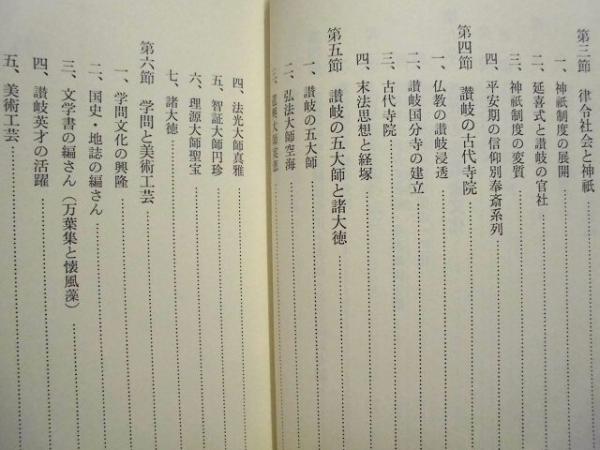 第三節　律令社会と神祇
一、神祇制度の展開
二、延喜式と讃岐の官社
三、神祇制度の変質
四、平安期の信仰別奉斎系列
第四節　讃岐の古代寺院
一、仏教の讃岐浸透
二、讃岐国分寺の建立
三、古代寺院
四、末法思想と経塚
第五節　讃岐の五大師と諸大徳
一、讃岐の五大師
二、弘法大師空海
四、法光大師真雅
五、智証大師円珍
六、理源大師聖宝
七、諸大徳
第六節　学問と美術工芸
一、学問文化の興隆
二、国史・地誌の編さん
三、文学書の編さん（万葉集と懐風藻）
四、讃岐英才の活躍
五、美術工芸